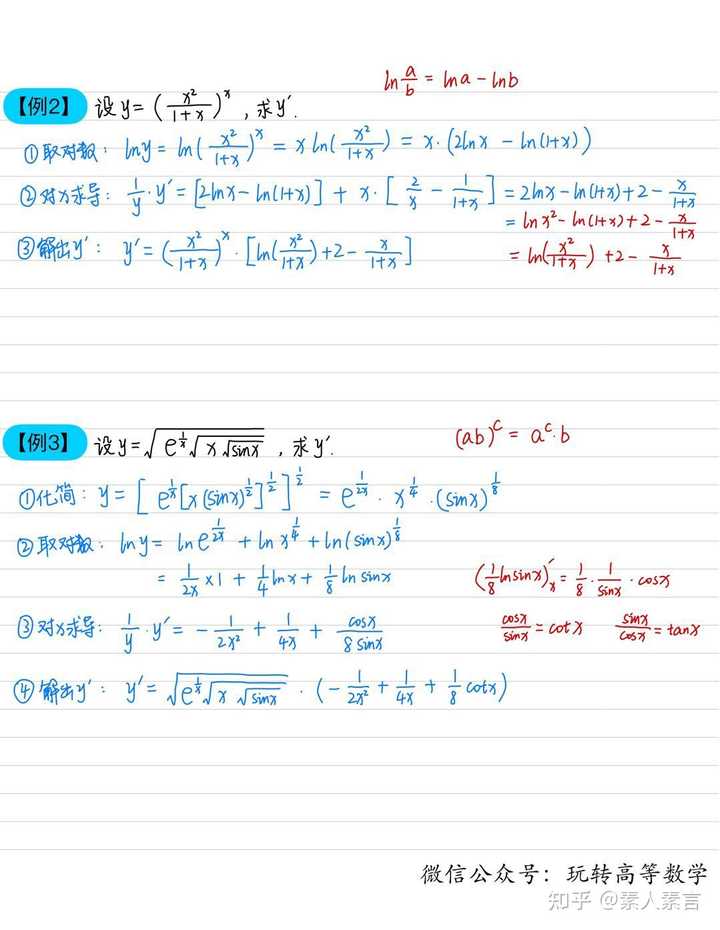 ln a/b = lna - lnb
【例2】 设 y = (x²/(1+x))^x , 求 y'.
①取对数: lny = ln(x²/(1+x))^x = x ln(x²/(1+x)) = x·(2lnx - ln(1+x))
②对x求导: 1/y · y' = [2lnx - ln(1+x)] + x·[2/x - 1/(1+x)] = 2lnx - ln(1+x) + 2 - x/(1+x)
= lnx² - ln(1+x) + 2 - x/(1+x)
③解出y': y' = (x²/(1+x))^x · [ln(x²/(1+x)) + 2 - x/(1+x)]
= ln(x²/(1+x)) + 2 - x/(1+x)
(ab)^c = a^c·b
【例3】 设 y = √(e^(1/x)√(x√(sinx))) , 求 y'.
①化简: y = [e^(1/x)[x(sinx)^(1/2)]^(1/2)]^(1/2) = e^(1/2x) · x^(1/4) · (sinx)^(1/8)
②取对数: lny = lne^(1/2x) + lnx^(1/4) + ln(sinx)^(1/8)
= 1/2x ×1 + 1/4 lnx + 1/8 ln sinx
(1/8 lnsinx)'ₓ = 1/8 · 1/sinx · cosx
③对x求导: 1/y · y' = - 1/2x² + 1/4x + cosx/8sinx
cosx/sinx = cotx sinx/cosx = tanx
④解出y': y' = √(e^(1/x)√(x√(sinx))) · (- 1/2x² + 1/4x + 1/8 cotx)
微信公众号：玩转高等数学
知乎 @素人素言